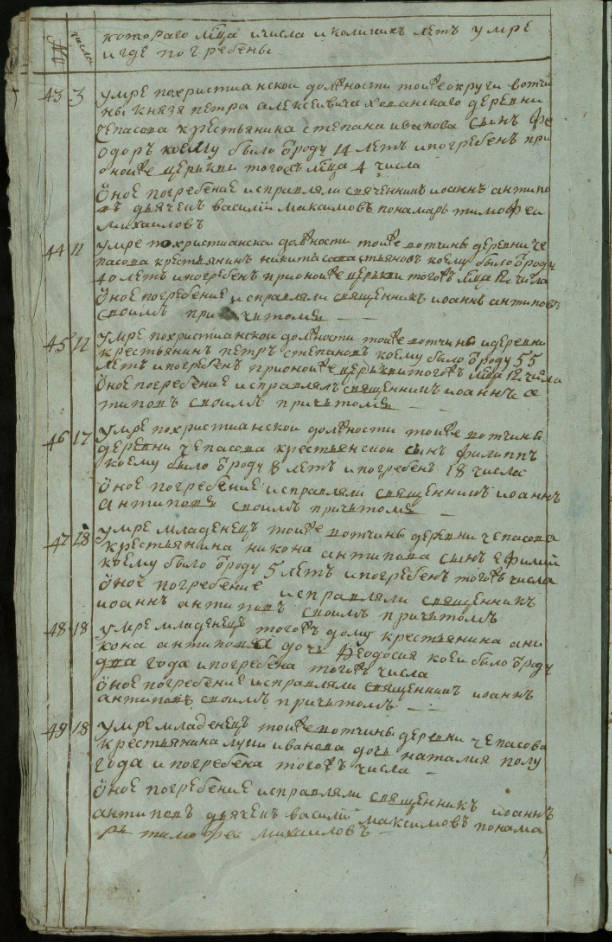 № числа
котораго м͠ца и числа и коликихъ летъ умре
и где погребены
43 3 умре похристианской должности тоиже округи вотчи
ны князя петра алексеивича хованскаго деревни
чепасова крестьянина степана ивыкова сынъ фе
одоръ коему было ѿроду 14 летъ и погребенъ при
оноиже церькви тогожъ м͠ца 4 числа
ѽное погребение исправляли священникъ иоаннъ антипо
въ дьячекъ василий максимовъ понамарь тимофеи
михаиловъ
44 11 умре похристианской должности тоиже вотчины деревни че
пасова крестьянинъ никита савастьяновъ коему было ѿроду
40 летъ и погребенъ при оноиже церькви тогожъ м͠ца 12 числа
ѽное погребение исправляли священникъ иоаннъ антиповъ
своимъ причьтомъ
45 11 умре похристианской должности тоиже вотчины и деревни
крестьянинъ петръ степановъ коему было ѿроду 55
летъ и погребенъ при оноиже церькви тогожъ м͠ца 12 числа
ѽное погребение исправлялъ священникъ иоаннъ а
типовъ своимъ причьтомъ
46 17 умре похристианской должности тоиже вотчины
деревни чепасова крестьянской сынъ филиппъ
коему было ѿроду 8 летъ и погребенъ 18 числа
ѽное погребение исправляли священникъ иоаннъ
антиповъ своимъ причьтомъ
47 18 умре младенецъ тоиже вотчины деревни чепасова
крестьянина никона антипова сынъ ефимий
коему было ѿроду 5 летъ и погребенъ тогожъ числа
ѽное погребение исправляли священникъ
иоаннъ антиповъ своимъ причьтомъ
48 18 умре младенецъ тогожъ дому крестьянина ни
кона антипова дочь феодосия коеи было ѿроду
два года и погребена тогожъ числа
ѽное погребение исправляли священникъ иоаннъ
антиповъ своимъ причьтомъ
49 18 умре младенецъ тоиже вотчины деревни чепасова
крестьянина луки иванова дочь наталия полу
года и погребена тогожъ числа
ѽное погребение исправляли священникъ иоаннъ
антиповъ дьячекъ василий максимовъ понама
рь тимофеи михаиловъ